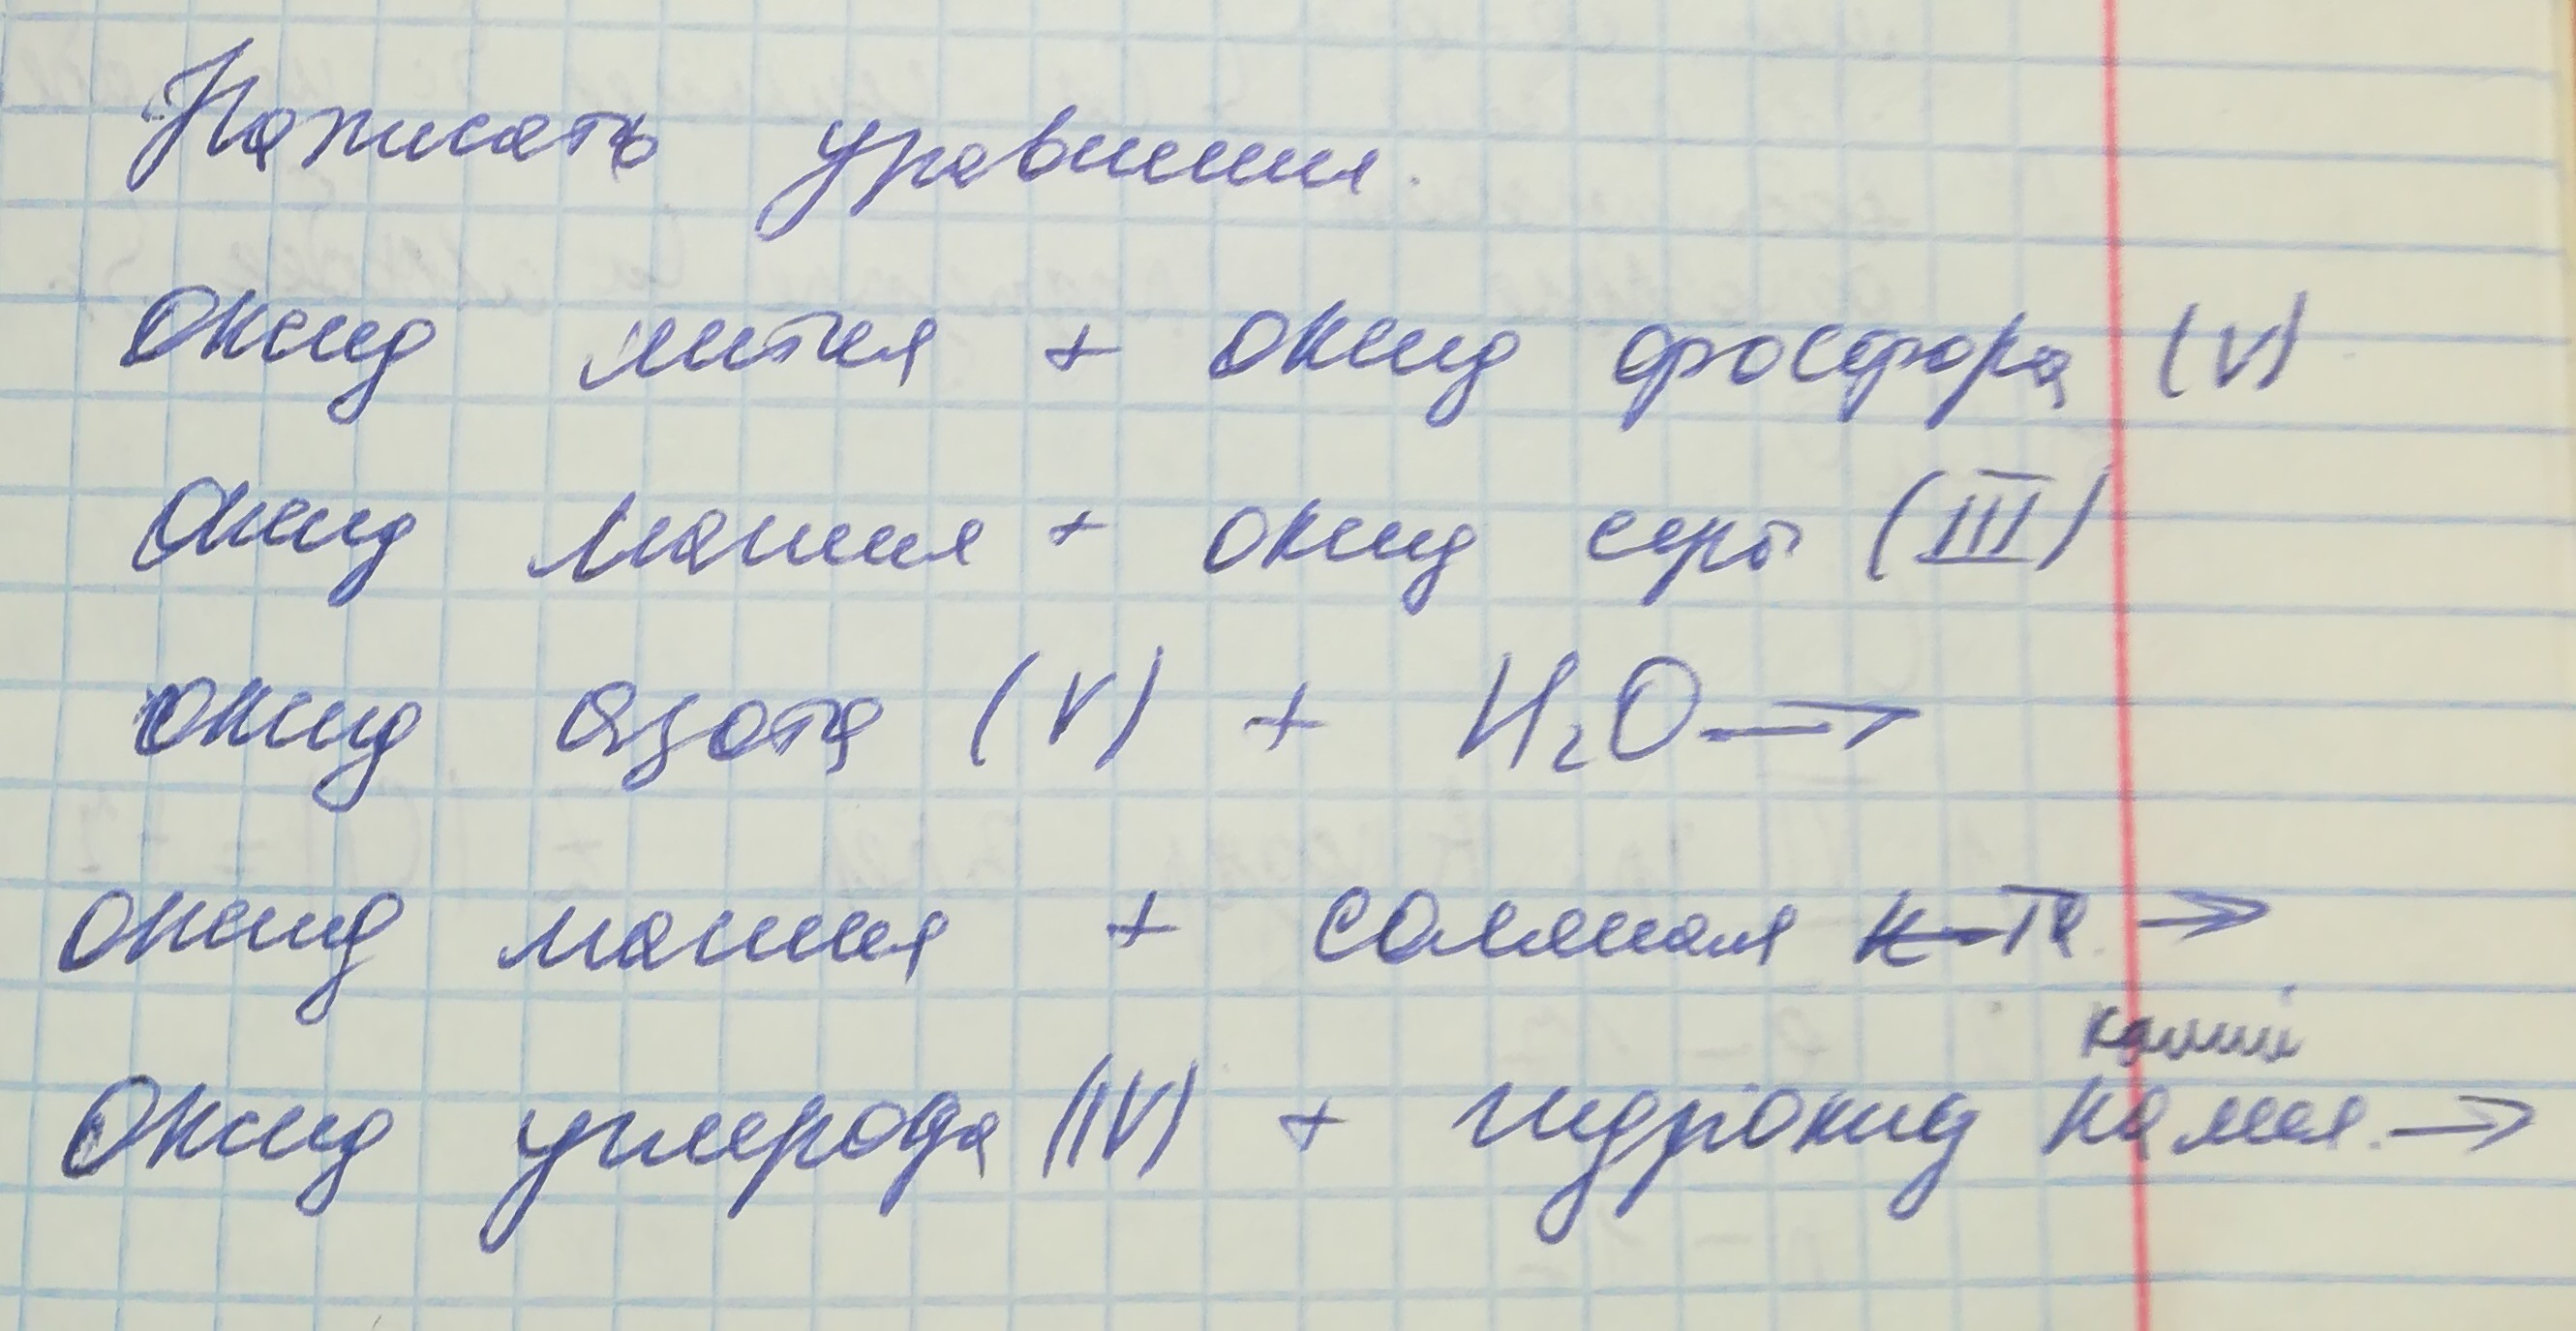 Написать уравнения.
Оксид лития + оксид фосфора (V)
Оксид магния + оксид серы (III)
оксид азота (V) + H₂O →
оксид магния + соляная к-та. →
калий
Оксид углерода (IV) + гидроксид калия. →